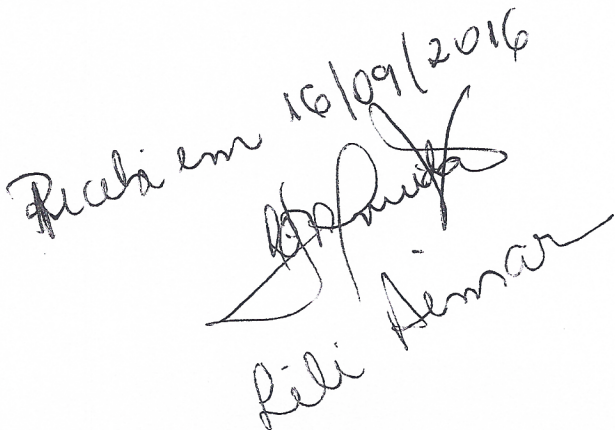 Recebi em 16/09/2016
Lili Aimar